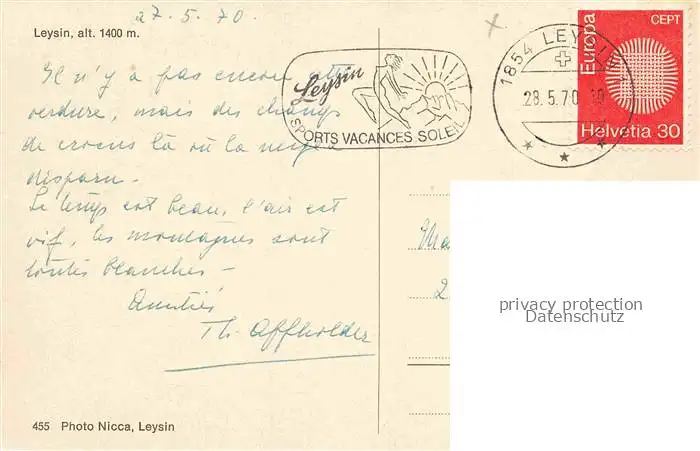 27.5.70.
Leysin, alt. 1400 m.
Il n'y a pas encore de
verdure, mais des champs
de crocus là où la neige a
disparu –
Le temps est beau, l'air est
vif, les montagnes sont
toutes blanches –
Amitiés
Th. Affholder
455 Photo Nicca, Leysin
Leysin
SPORTS VACANCES SOLEIL
1854 LEYSIN
28.5.70
Europa
CEPT
Helvetia 30
privacy protection
Datenschutz